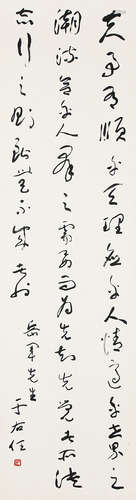 夫事有順乎天理應乎人情適乎世界之
潮流合乎人群之需要而為先知先覺者所決
志行之則斷無不成者也
岳軍先生
于右任